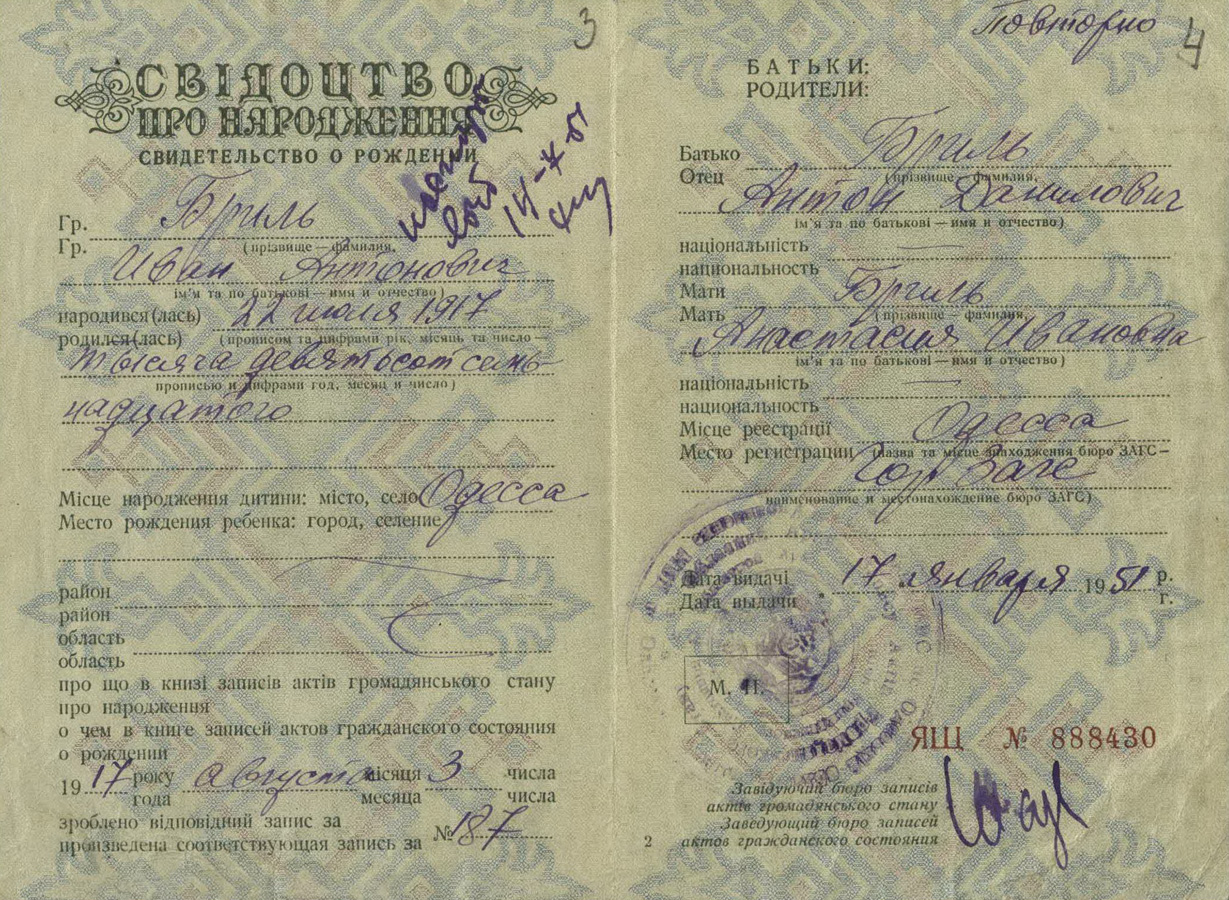 3
СВІДОЦТВО
ПРО НАРОДЖЕННЯ
СВИДЕТЕЛЬСТВО О РОЖДЕНИИ
14-X-51
Гр. Бриль
Гр. (прізвище — фамилия,
Иван Антонович
ім'я та по батькові — имя и отчество)
народився(лась) 22 июля 1917
родился(лась) (прописом та цифрами рік, місяць та число —
тысяча девятьсот семь
прописью и цифрами год, месяц и число)
надцатого
Місце народження дитини: місто, село Одесса
Место рождения ребенка: город, селение
район
район
область
область
про що в книзі записів актів громадянського стану
про народження
о чем в книге записей актов гражданского состояния
о рождении
1917 року августа місяця 3 числа
года месяца числа
зроблено відповідний запис за
произведена соответствующая запись за № 187
Повторно
4
БАТЬКИ:
РОДИТЕЛИ:
Батько Бриль
Отец (прізвище — фамилия,
Антон Данилович
ім'я та по батькові — имя и отчество)
національність —
национальность
Мати Бриль
Мать (прізвище — фамилия,
Анастасия Ивановна
ім'я та по батькові — имя и отчество)
національність —
национальность
Місце реєстрації Одесса
Место регистрации (назва та місце знаходження бюро ЗАГС —
Гор Загс
наименование и местонахождение бюро ЗАГС)
Дата видачі 17 января 1951 р.
Дата выдачи г.
М. П.
ЯЩ № 888430
Завідуючий бюро записів
актів громадянського стану
Заведующий бюро записей
актов гражданского состояния
2